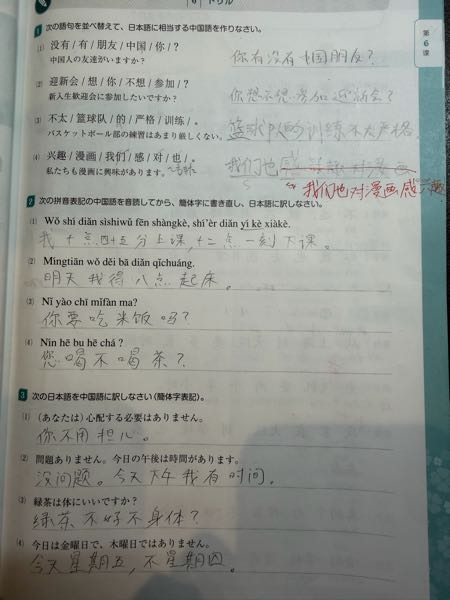 6 ドリル
第6课
1 次の語句を並べ替えて、日本語に相当する中国語を作りなさい。
(1) 没有 / 有 / 朋友 / 中国 / 你 / ?
中国人の友達がいますか?
你有没有中国朋友?
(2) 迎新会 / 想 / 你 / 不想 / 参加 / ?
新入生歓迎会に参加したいですか?
你想不想参加迎新会?
(3) 不太 / 篮球队 / 的 / 严格 / 训练 / 。
バスケットボール部の練習はあまり厳しくない。
篮球队的训练不太严格
(4) 兴趣 / 漫画 / 我们 / 感 / 对 / 也 / 。
私たちも漫画に興味があります。
我们也感兴趣对漫画
我们也对漫画感兴趣
2 次の拼音表記の中国語を音読してから、簡体字に書き直し、日本語に訳しなさい。
(1) Wǒ shí diǎn sìshiwǔ fēn shàngkè, shí'èr diǎn yí kè xiàkè.
我十点四十五分上课,十二点一刻下课。
(2) Míngtiān wǒ děi bā diǎn qǐchuáng.
明天我得八点起床。
(3) Nǐ yào chī mǐfàn ma?
你要吃米饭吗?
(4) Nín hē bu hē chá ?
您喝不喝茶?
3 次の日本語を中国語に訳しなさい(簡体字表記)。
(1) (あなたは)心配する必要はありません。
你不用担心。
(2) 問題ありません。今日の午後は時間があります。
没问题。今天下午我有时间。
(3) 緑茶は体にいいですか?
绿茶不好不身体?
(4) 今日は金曜日で、木曜日ではありません。
今天星期五,不星期四。